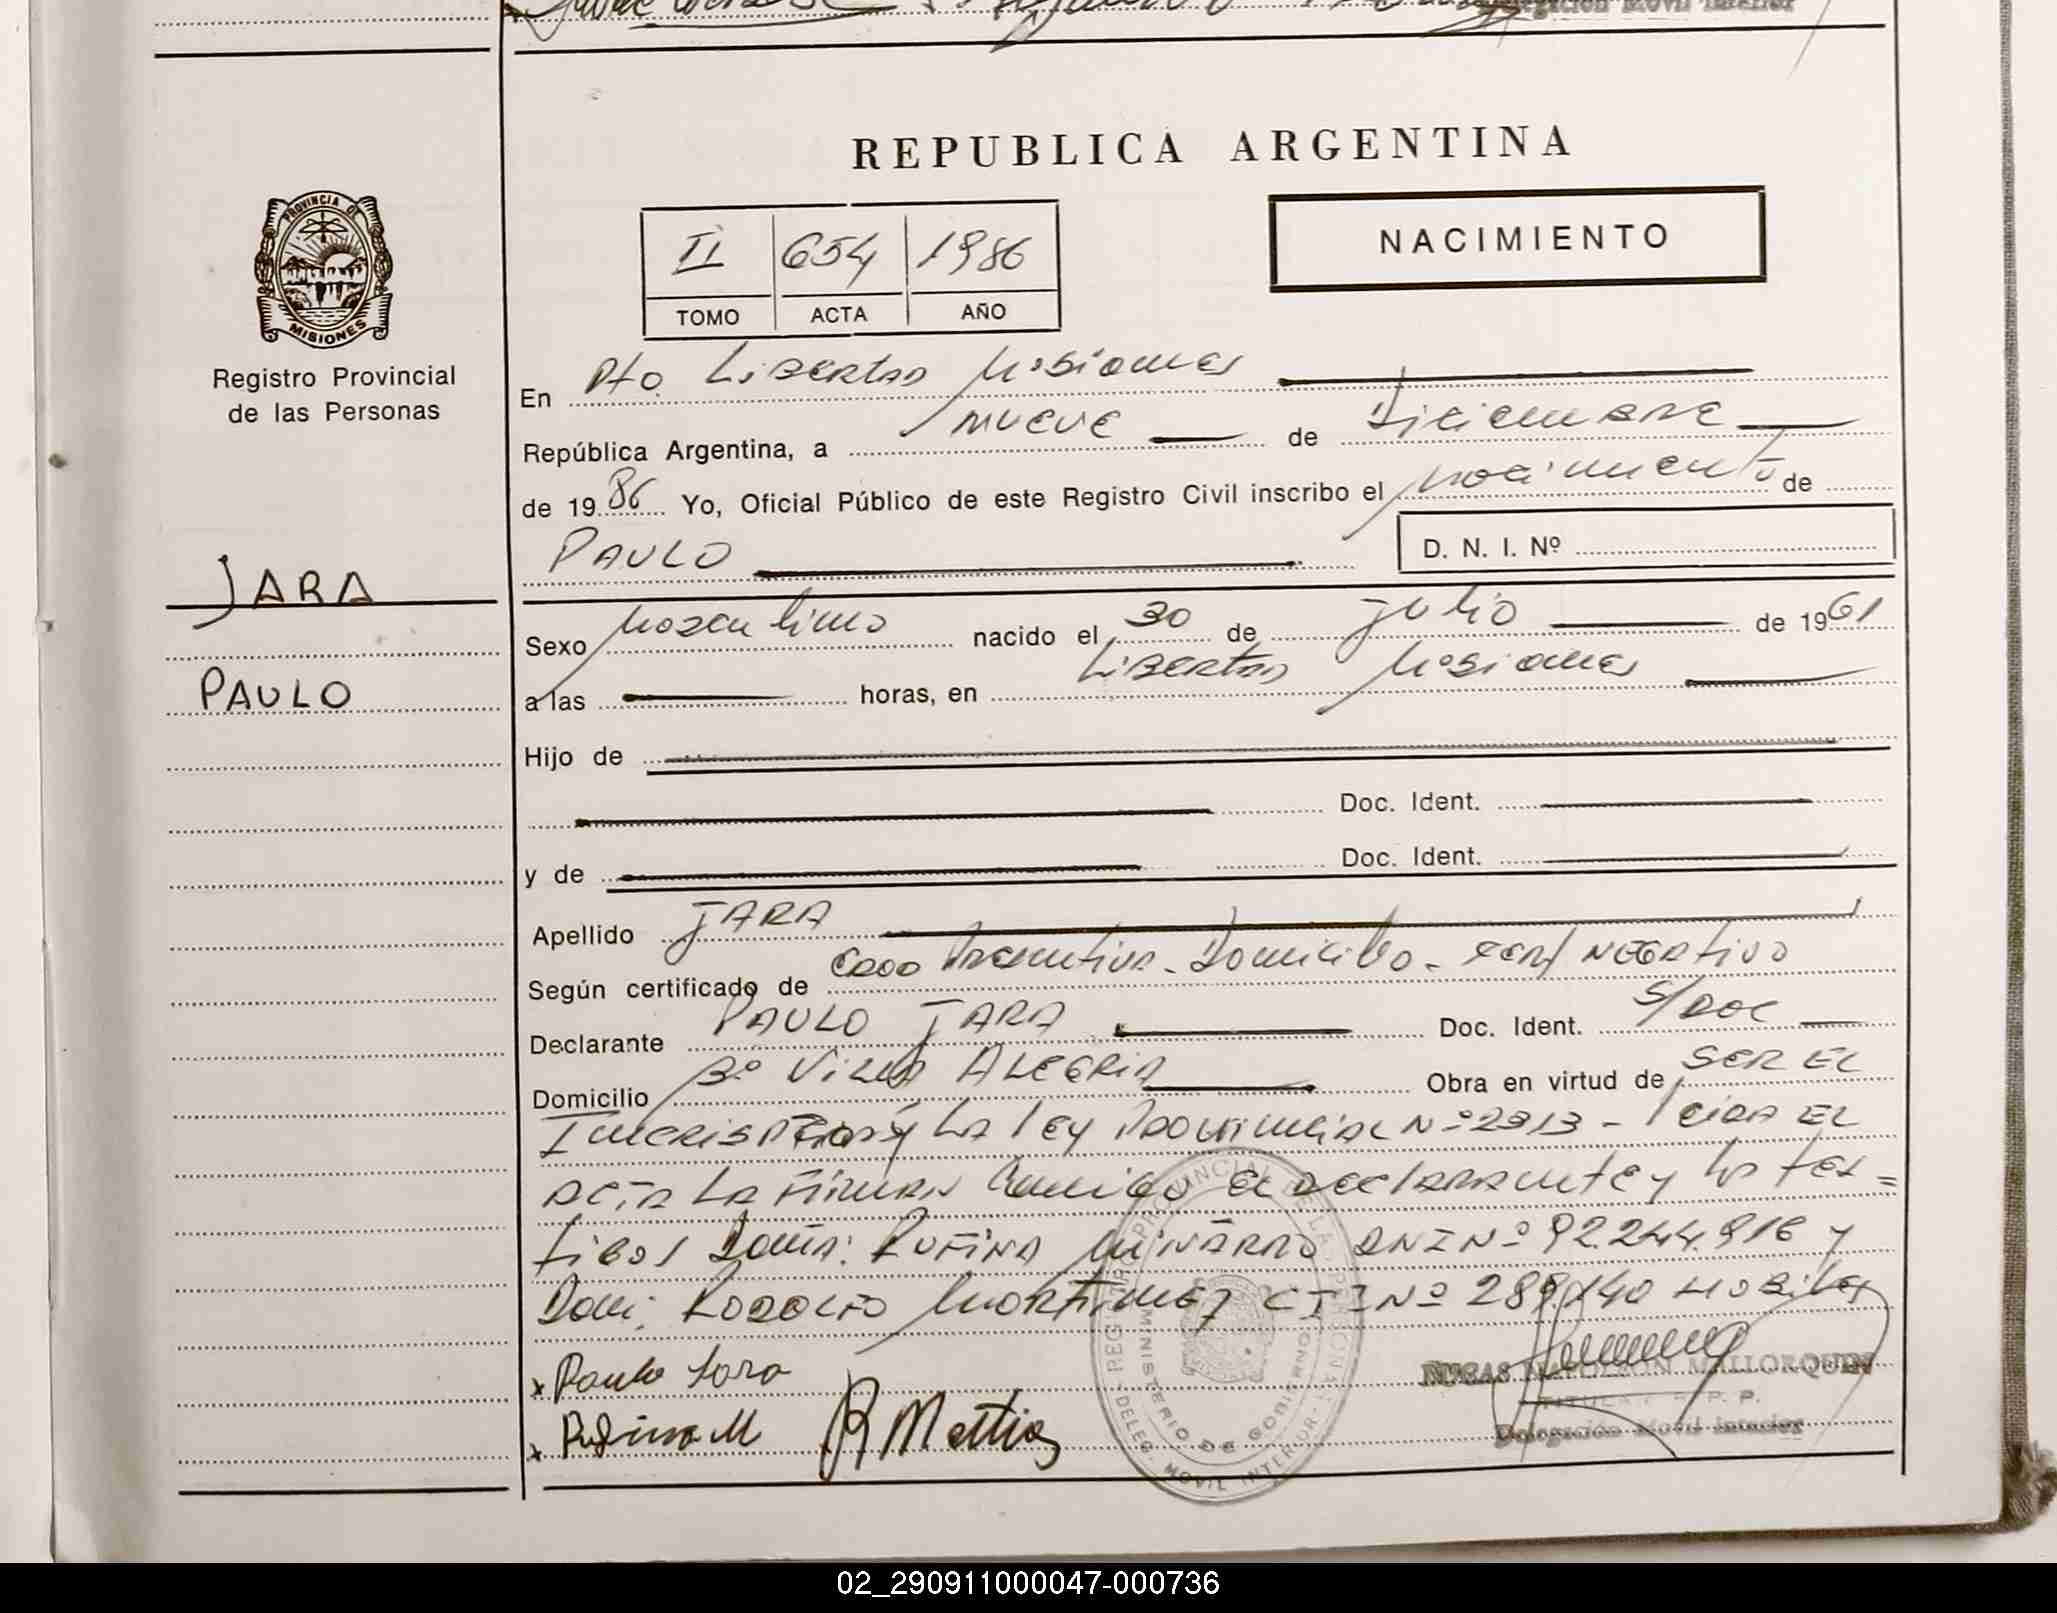 REPUBLICA ARGENTINA
PROVINCIA DE
MISIONES
Registro Provincial
de las Personas
JARA
PAULO
II 654 1986
TOMO ACTA AÑO
NACIMIENTO
En Pto. Libertad Misiones
República Argentina, a nueve de Diciembre
de 1986 Yo, Oficial Público de este Registro Civil inscribo el nacimiento de
PAULO
D. N. I. Nº
Sexo Masculino nacido el 30 de julio de 1961
a las horas, en Libertad Misiones
Hijo de
Doc. Ident.
y de Doc. Ident.
Apellido JARA
Según certificado de Edad Presuntiva - Domicilio - Cert/ Negativo
Declarante PAULO JARA Doc. Ident. S/DOC
Domicilio Bº Villa Alegria Obra en virtud de SER EL
y La Ley Provincial Nº 2313 - Leida EL
acta La firman conmigo el declarante y los tes=
tigos Doña: Rufina DNI Nº 92.244.916 y
Don: Rodolfo Martinez CI Nº Habiles
x Paulo Jara
x Rufina M
REG. PROVINCIAL DE LA PERSONA
MINISTERIO DE GOBIERNO
DELEG. MOVIL INTERIOR
NAPOLEON MALLORQUIN
TITULAR R. P. P.
Delegación Movil Interior
02_290911000047-000736